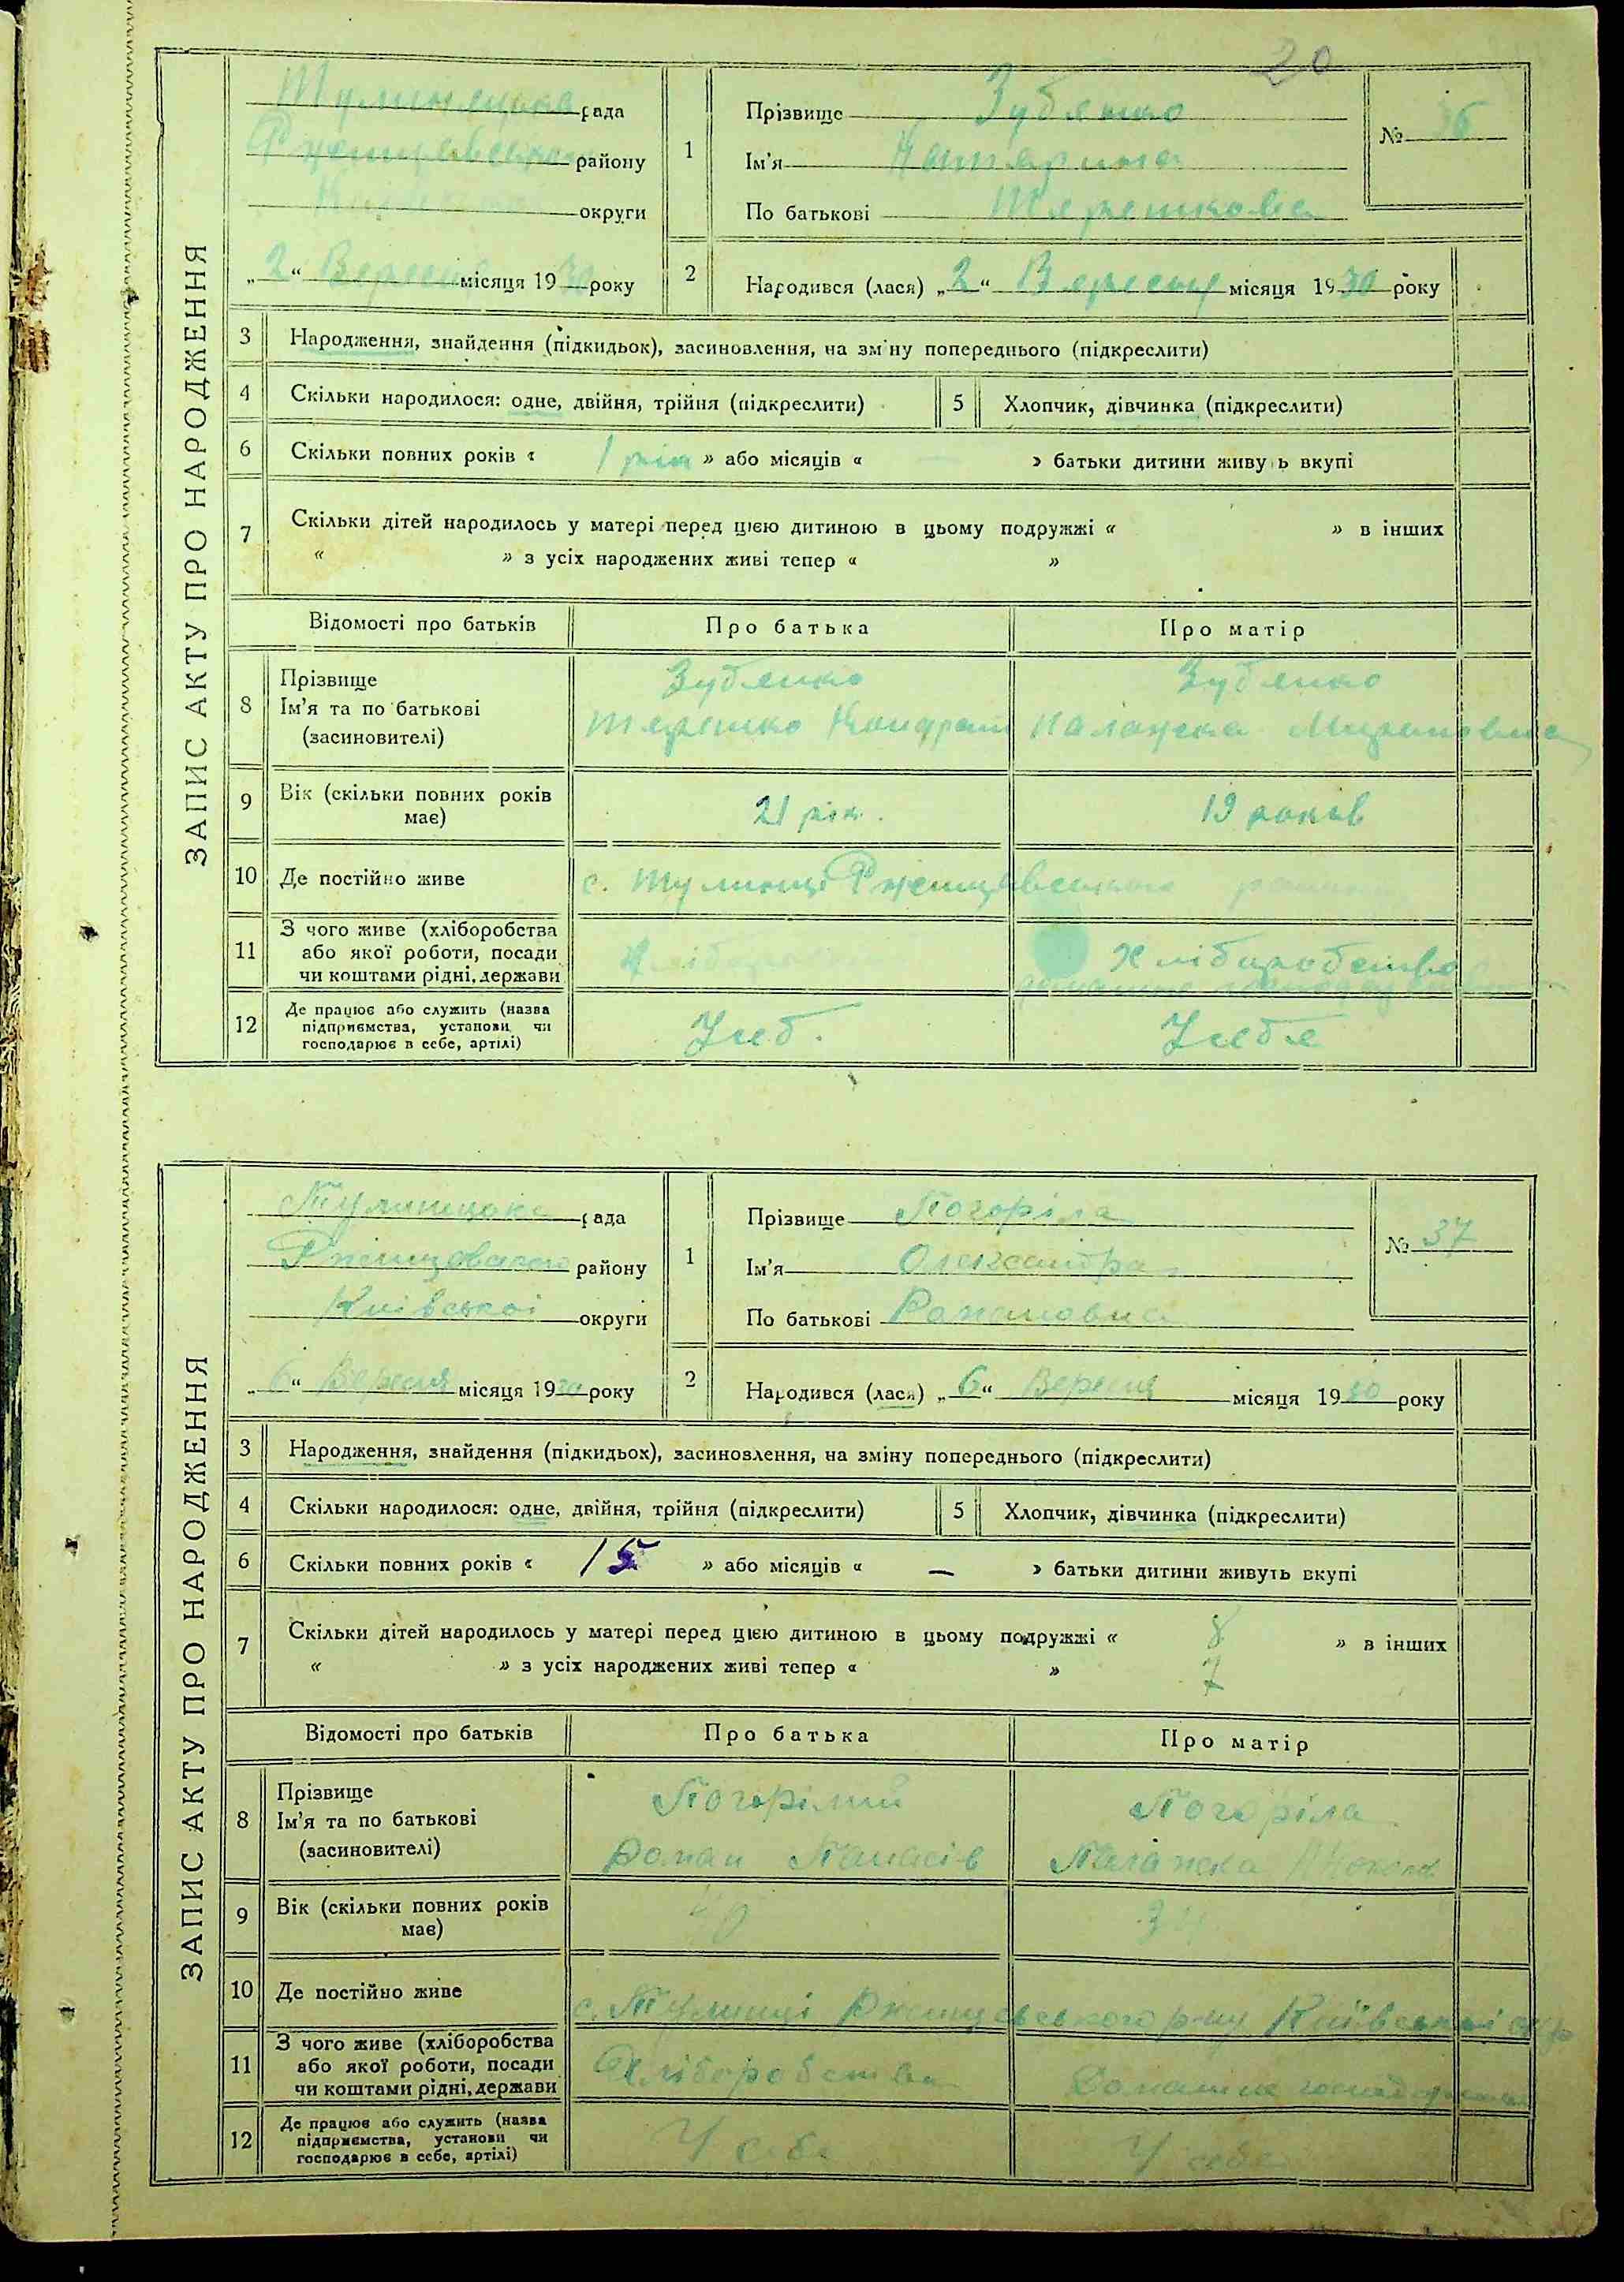 20
ЗАПИС АКТУ ПРО НАРОДЖЕННЯ
Тулинецька рада
Ржищівського району
округи
„2“ Вересня місяця 1930 року
1 Прізвище Зубенко
Ім'я Катерина
По батькові Терешковна
№ 36
2 Народився (лася) „2“ Вересня місяця 1930 року
3 Народження, знайдення (підкидьок), засиновлення, на зміну попереднього (підкреслити)
4 Скільки народилося: одне, двійня, трійня (підкреслити) 5 Хлопчик, дівчинка (підкреслити)
6 Скільки повних років « 1 рік » або місяців « — » батьки дитини живуть вкупі
7 Скільки дітей народилось у матері перед цією дитиною в цьому подружжі « » в інших
« » з усіх народжених живі тепер « »
Відомості про батьків Про батька Про матір
8 Прізвище Ім'я та по батькові (засиновителі)
Зубенко Зубенко
Терешко Кондрат Палажка Мироновна
9 Вік (скільки повних років має) 21 рік. 19 років
10 Де постійно живе с. Тулинці Ржищівського району
11 З чого живе (хліборобства або якої роботи, посади чи коштами рідні, держави Хліборобство
12 Де працює або служить (назва підприємства, установи чи господарює в себе, артілі) Усеб. Усебе
ЗАПИС АКТУ ПРО НАРОДЖЕННЯ
Тулинецька рада
Ржищовского району
Київської округи
„6“ Вересня місяця 1930 року
1 Прізвище Погоріла
Ім'я Олександра
По батькові Романовна
№ 37
2 Народився (лася) „6“ Вересня місяця 1930 року
3 Народження, знайдення (підкидьок), засиновлення, на зміну попереднього (підкреслити)
4 Скільки народилося: одне, двійня, трійня (підкреслити) 5 Хлопчик, дівчинка (підкреслити)
6 Скільки повних років « 15 » або місяців « — » батьки дитини живуть вкупі
7 Скільки дітей народилось у матері перед цією дитиною в цьому подружжі « 8 » в інших
« » з усіх народжених живі тепер « » 7
Відомості про батьків Про батька Про матір
8 Прізвище Ім'я та по батькові (засиновителі)
Погорілий Погоріла
Роман Панасів Палажка
9 Вік (скільки повних років має) 40
10 Де постійно живе с. Тулинці Ржищевського р-ну Київської окр
11 З чого живе (хліборобства або якої роботи, посади чи коштами рідні, держави Хліборобства Домашне
12 Де працює або служить (назва підприємства, установи чи господарює в себе, артілі) У себе У себе